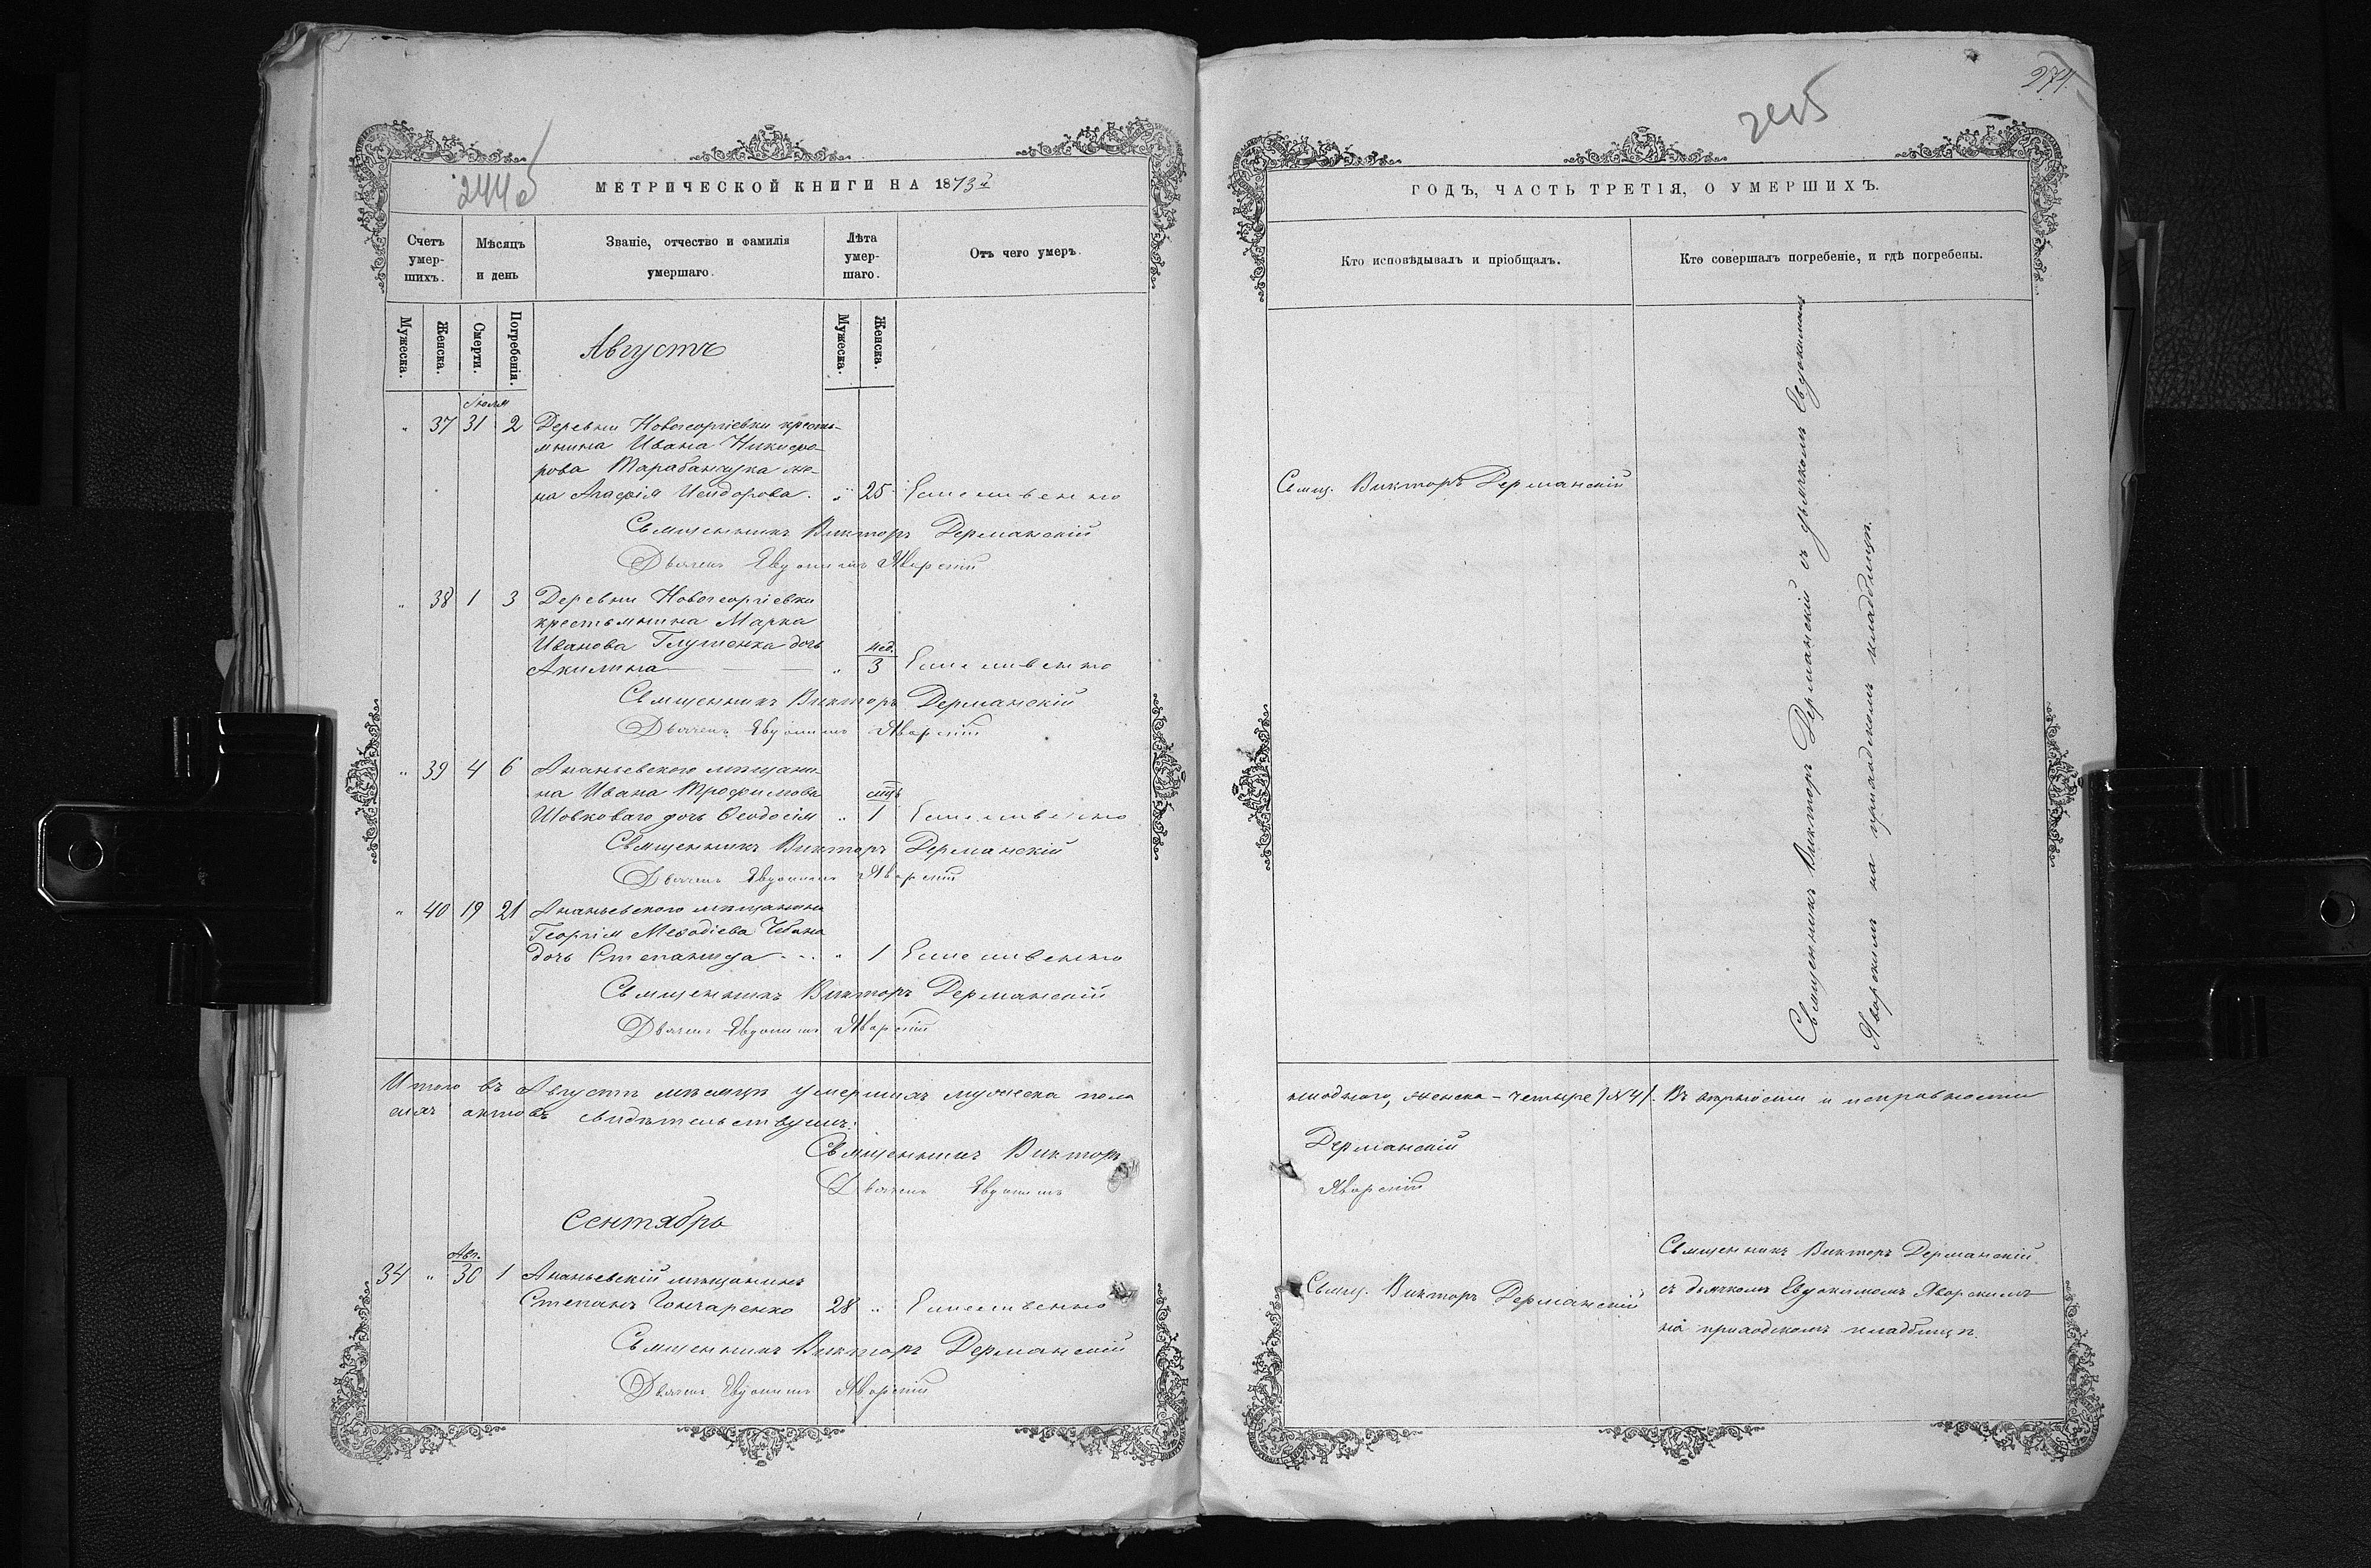 244об
МЕТРИЧЕСКОЙ КНИГИ НА 1873й
Счетъ умер-шихъ.
Мѣсяцъ и день
Званіе, отчество и фамилія умершаго.
Лѣта умер-шаго.
Отъ чего умеръ.
Мужеска.
Женска.
Смерти.
Погребенія.
Мужеска.
Женска.
Августъ
Іюля
„ 37 31 2 Деревни Новогеоргіевки кресть-
янина Ивана Никифо-
рова Тарабанчука же-
на Агафія Исидорова. „ 25 Естественно
Священникъ Викторъ Дерманскій
Дьячекъ Евдокимъ Яворскій
„ 38 1 3 Деревни Новогеоргіевки
крестьянина Марка
Иванова Глушенка дочь нед.
Акилина „ 3 Естественно
Священникъ Викторъ Дерманскій
Дьячекъ Евдокимъ Яворскій
„ 39 4 6 Ананьевского мѣщани-
на Ивана Трофимова мцъ
Шовковаго дочь Ѳеодосія „ 1 Естественно
Священникъ Викторъ Дерманскій
Дьячекъ Евдокимъ Яворскій
„ 40 19 21 Ананьевского мѣщанина
Георгія Меѳодіева Чебана
дочь Степанида „ 1 Естественно
Священникъ Викторъ Дерманскій
Дьячекъ Евдокимъ Яворскій
Итого въ Августѣ мѣсяцѣ умершихъ мужеска пола
сихъ актовъ свидѣтельствуемъ:
Священникъ Викторъ
Дьячекъ Евдокимъ
Сентябрь
Авг.
34 „ 30 1 Ананьевскій мѣщанинъ
Степанъ Гончаренко 28 „ Естественно
Священникъ Викторъ Дерманскій
Дьячекъ Евдокимъ Яворскій
274.
245
ГОДЪ, ЧАСТЬ ТРЕТІЯ, О УМЕРШИХЪ.
Кто исповѣдывалъ и пріобщалъ.
Кто совершалъ погребеніе, и гдѣ погребены.
Свящ. Викторъ Дерманскій
Священникъ Викторъ Дерманскій съ дьячкомъ Евдокимомъ
Яворскимъ на приходскомъ кладбищѣ.
ниодного, женска – четыре /№4/. Въ вѣрности и исправности
Дерманскій
Яворскій
Свящ. Викторъ Дерманскій
Священникъ Викторъ Дерманскій
съ дьячкомъ Евдокимомъ Яворскимъ
на приходскомъ кладбищѣ.